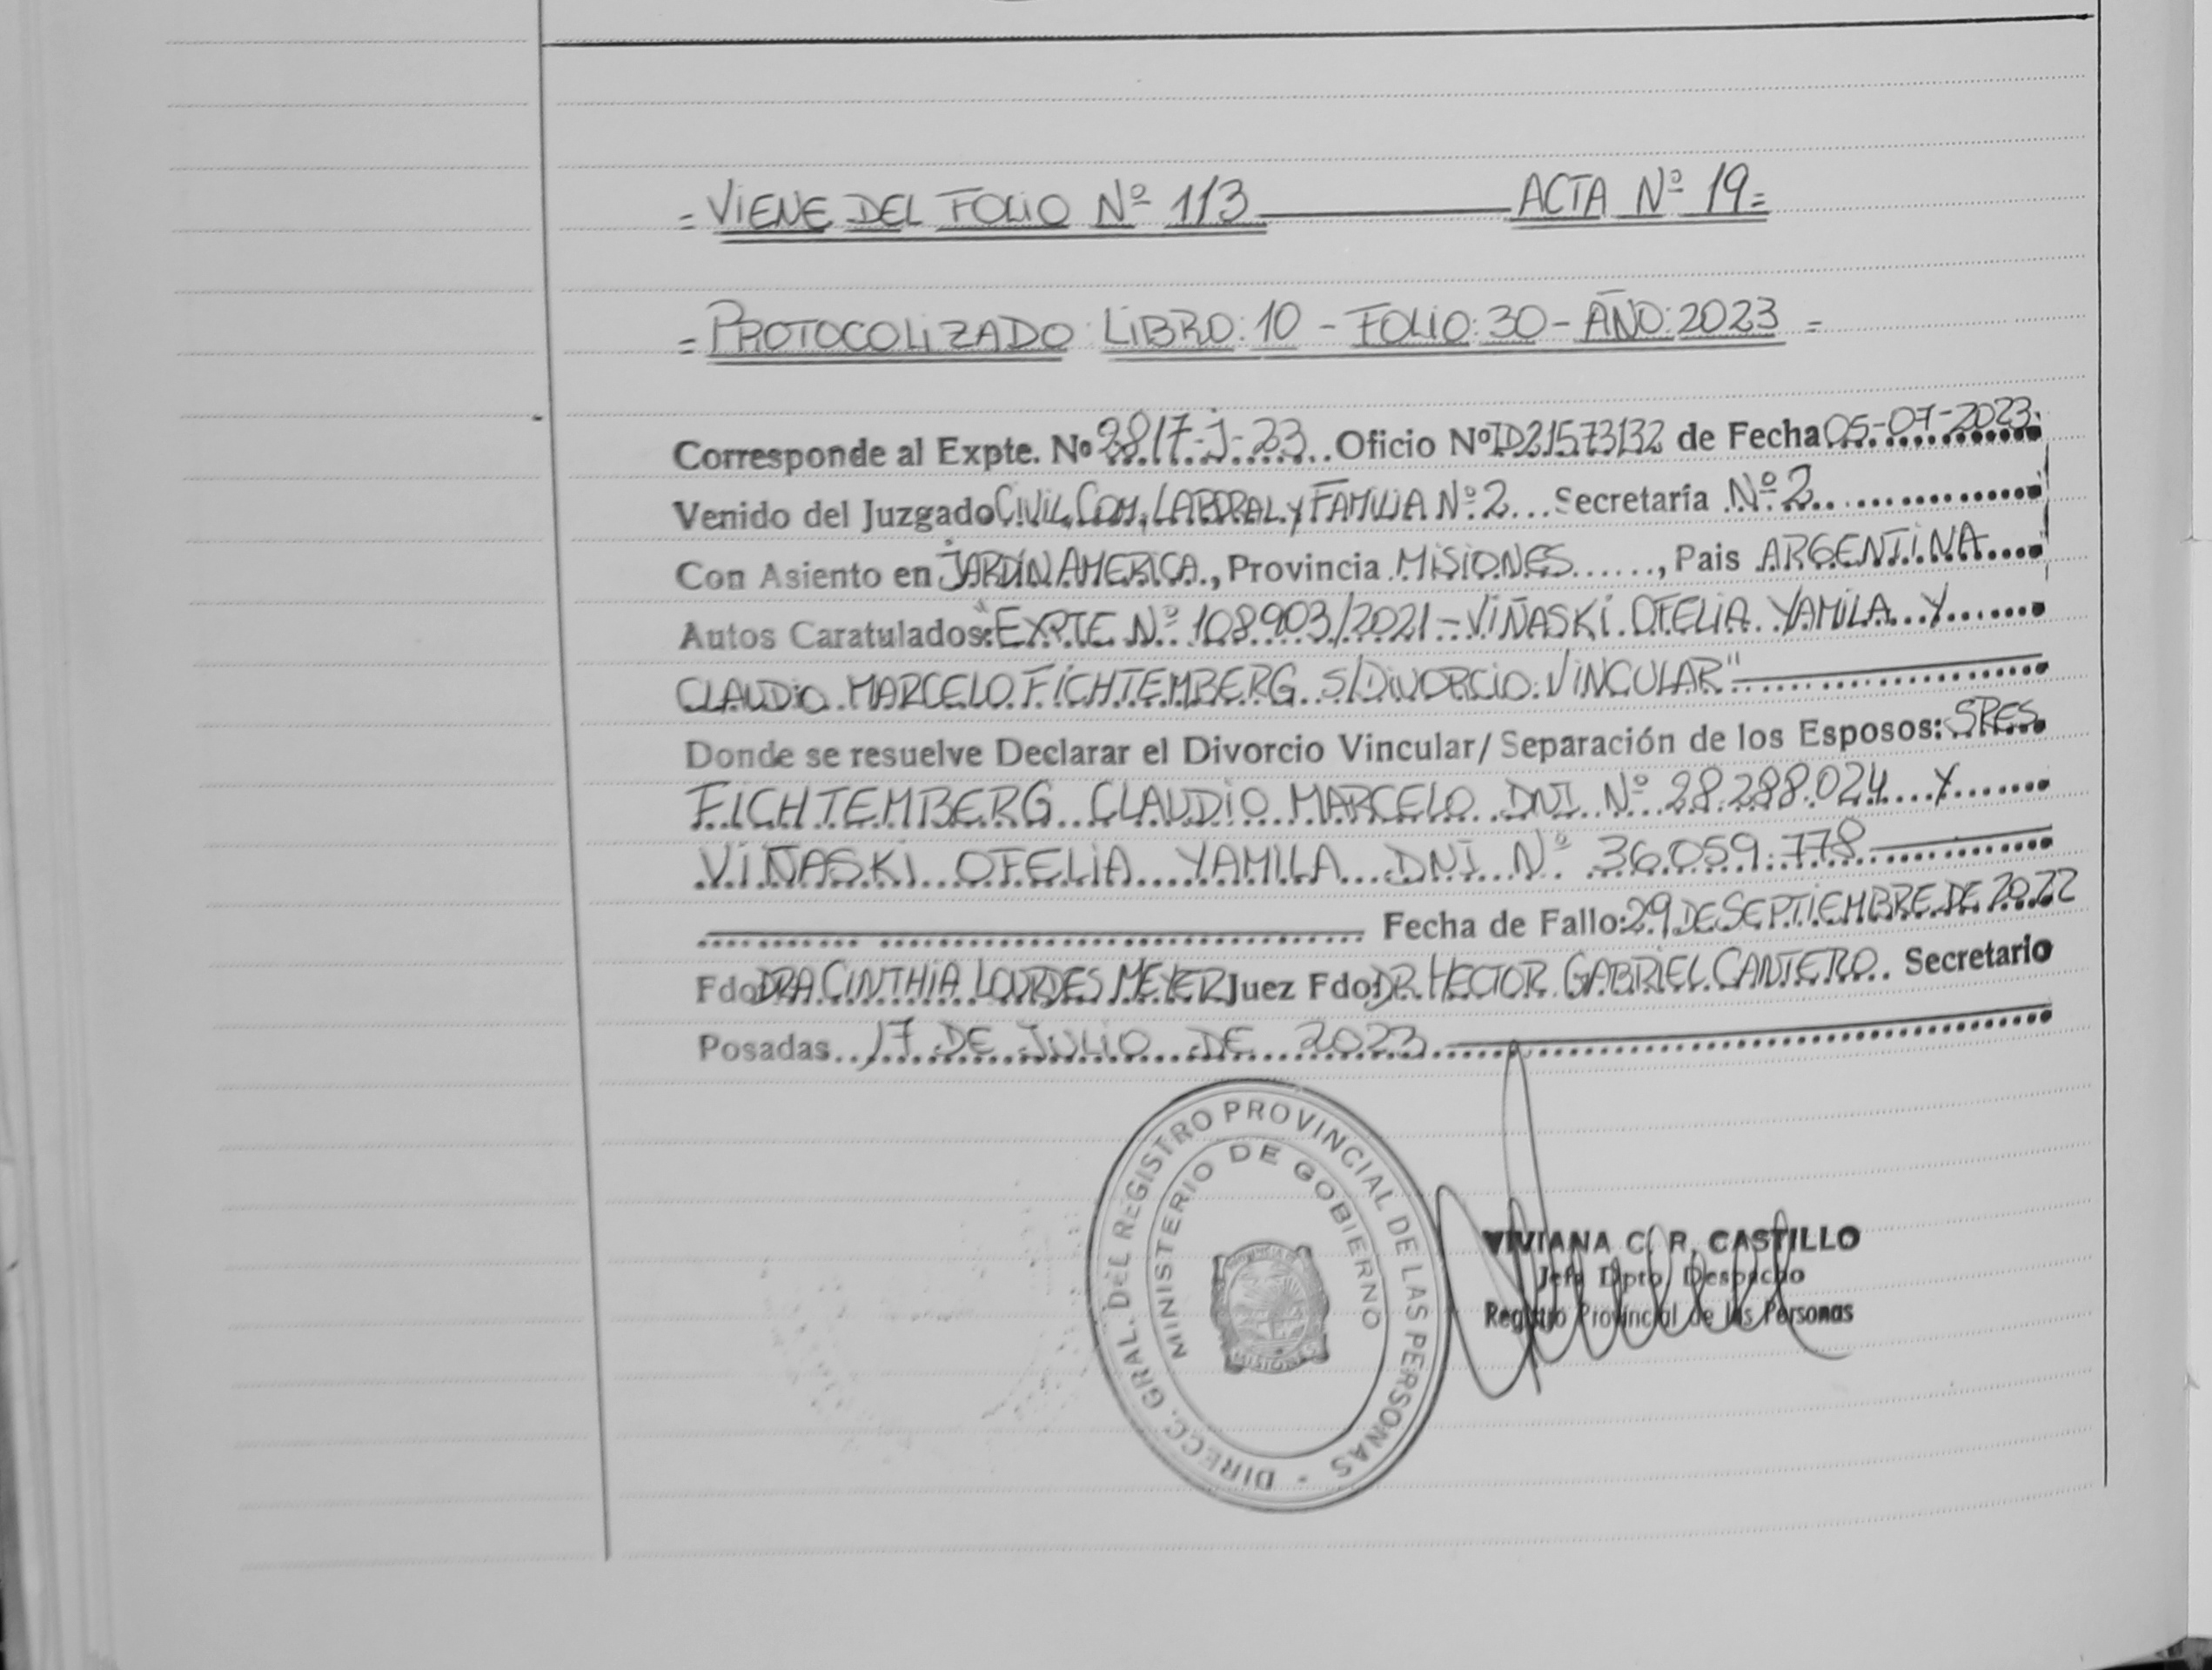 = VIENE DEL FOLIO Nº 113 ACTA Nº 19=
= PROTOCOLIZADO LIBRO: 10 - FOLIO: 30 - AÑO: 2023 =
Corresponde al Expte. Nº 9817-J-23 Oficio Nº ID21573132 de Fecha 05-07-2023.
Venido del Juzgado CIVIL, COM, LABORAL Y FAMILIA Nº 2 Secretaría Nº 2
Con Asiento en JARDIN AMERICA, Provincia MISIONES, Pais ARGENTINA
Autos Caratulados: "EXPTE Nº 108903/2021 - VIÑASKI OFELIA YAMILA Y
CLAUDIO MARCELO FICHTEMBERG S/DIVORCIO VINCULAR"
Donde se resuelve Declarar el Divorcio Vincular/ Separación de los Esposos: SRES.
FICHTEMBERG CLAUDIO MARCELO DNI Nº 28.288.024 Y
VIÑASKI OFELIA YAMILA DNI Nº 36.059.778
Fecha de Fallo: 29 DE SEPTIEMBRE DE 2022
Fdo: DRA CINTHIA LOURDES MEYER Juez Fdo: DR. HECTOR GABRIEL CANTERO Secretario
Posadas 17 DE JULIO DE 2023
DIRECC. GRAL. DEL REGISTRO PROVINCIAL DE LAS PERSONAS -
MINISTERIO DE GOBIERNO
PROVINCIA DE
MISIONES
VIVIANA C. R. CASTILLO
Jefa Dpto. Despacho
Registro Provincial de las Personas